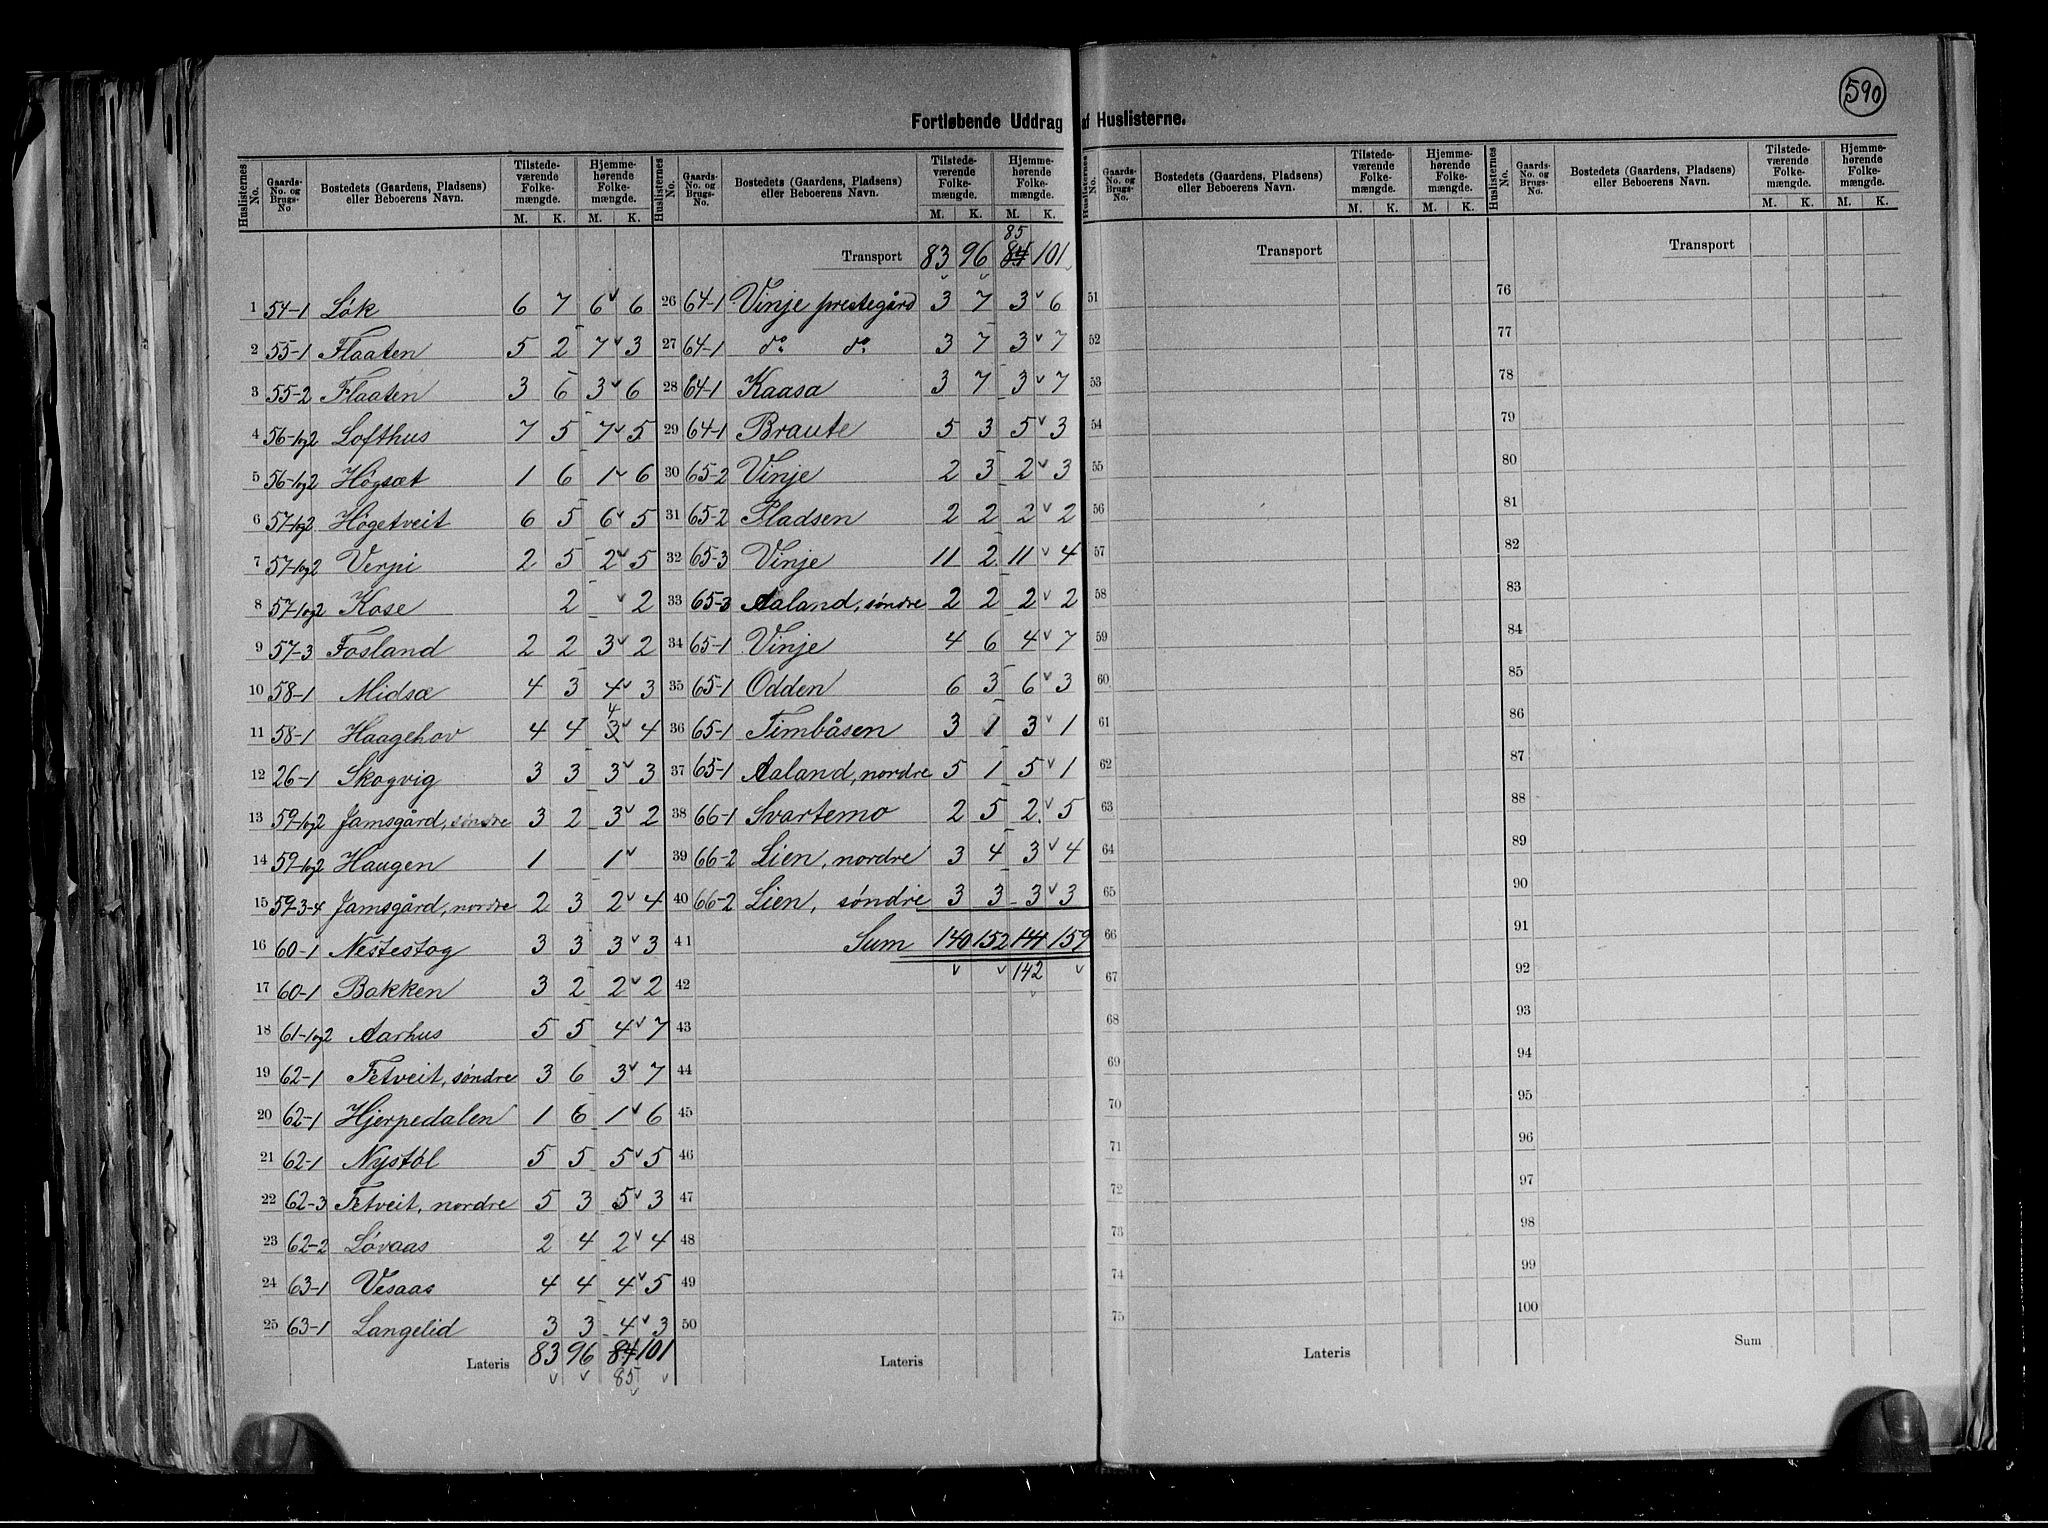 590
Fortløbende Uddrag af Huslisterne.
Huslisternes No. Gaards-No. og Brugs-No. Bostedets (Gaardens, Pladsens) eller Beboerens Navn. Tilstedeværende Folkemængde. M. K. Hjemmehørende Folkemængde. M. K.
1 54-1 Løk 6 7 6 6
2 55-1 Flaaten 5 2 7 3
3 55-2 Flaaten 3 6 3 6
4 56-1og2 Lofthus 7 5 7 5
5 56-1og2 Høgsæt 1 6 1 6
6 57-1og2 Høgetveit 6 5 6 5
7 57-1og2 Verpi 2 5 2 5
8 57-1og2 Kose 2 2
9 57-3 Fosland 2 2 3 2
10 58-1 Midsæ 4 3 4 3
11 58-1 Haagehov 4 4 3 4 4
12 26-1 Skogvig 3 3 3 3
13 59-1og2 Jamsgård, søndre 3 2 3 2
14 59-1og2 Haugen 1 1
15 59-3-4 Jamsgård, nordre 2 3 2 4
16 60-1 Nestestog 3 3 3 3
17 60-1 Bakken 3 2 2 2
18 61-1og2 Aarhus 5 5 4 7
19 62-1 Tetveit, søndre 3 6 3 7
20 62-1 Hjerpedalen 1 6 1 6
21 62-1 Nystøl 5 5 5 5
22 62-3 Tetveit, nordre 5 3 5 3
23 62-2 Løvaas 2 4 2 4
24 63-1 Vesaas 4 4 4 5
25 63-1 Langelid 3 3 4 3
Lateris 83 96 84 101
85
Huslisternes No. Gaards-No. og Brugs-No. Bostedets (Gaardens, Pladsens) eller Beboerens Navn. Tilstedeværende Folkemængde. M. K. Hjemmehørende Folkemængde. M. K.
85
Transport 83 96 84 101
26 64-1 Vinje prestegård 3 7 3 6
27 64-1 do do 3 7 3 7
28 64-1 Kaasa 3 7 3 7
29 64-1 Braute 5 3 5 3
30 65-2 Vinje 2 3 2 3
31 65-2 Pladsen 2 2 2 2
32 65-3 Vinje 11 2 11 4
33 65-3 Aaland, søndre 2 2 2 2
34 65-1 Vinje 4 6 4 7
35 65-1 Odden 6 3 6 3
36 65-1 Timbåsen 3 1 3 1
37 65-1 Aaland, nordre 5 1 5 1
38 66-1 Svartemo 2 5 2 5
39 66-2 Lien, nordre 3 4 3 4
40 66-2 Lien, søndre 3 3 3 3
41 Sum 140 152 141 159
142
42
43
44
45
46
47
48
49
50
Lateris
Huslisternes No. Gaards-No. og Brugs-No. Bostedets (Gaardens, Pladsens) eller Beboerens Navn. Tilstedeværende Folkemængde. M. K. Hjemmehørende Folkemængde. M. K.
Transport
51
52
53
54
55
56
57
58
59
60
61
62
63
64
65
66
67
68
69
70
71
72
73
74
75
Lateris
Huslisternes No. Gaards-No. og Brugs-No. Bostedets (Gaardens, Pladsens) eller Beboerens Navn. Tilstedeværende Folkemængde. M. K. Hjemmehørende Folkemængde. M. K.
Transport
76
77
78
79
80
81
82
83
84
85
86
87
88
89
90
91
92
93
94
95
96
97
98
99
100
Sum